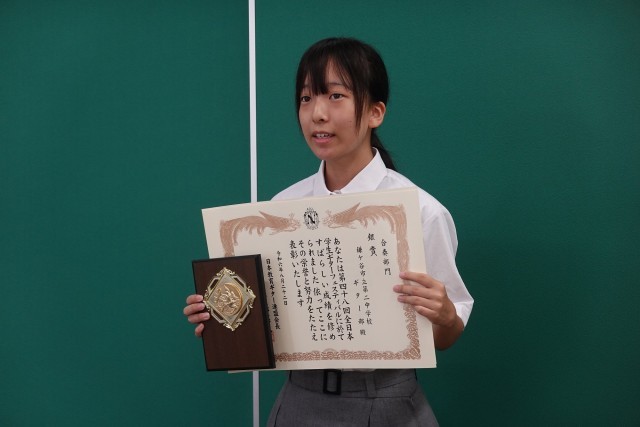 合奏部門
銀賞
鎌ケ谷市立第二中学校
ギター部殿
あなたは第四十八回全日本
学生ギターフェスティバルに於て
すばらしい成績を修め
られました依ってここに
その栄誉と努力をたたえ
表彰いたします
令和六年八月二十二日
日本教育ギター連盟会長